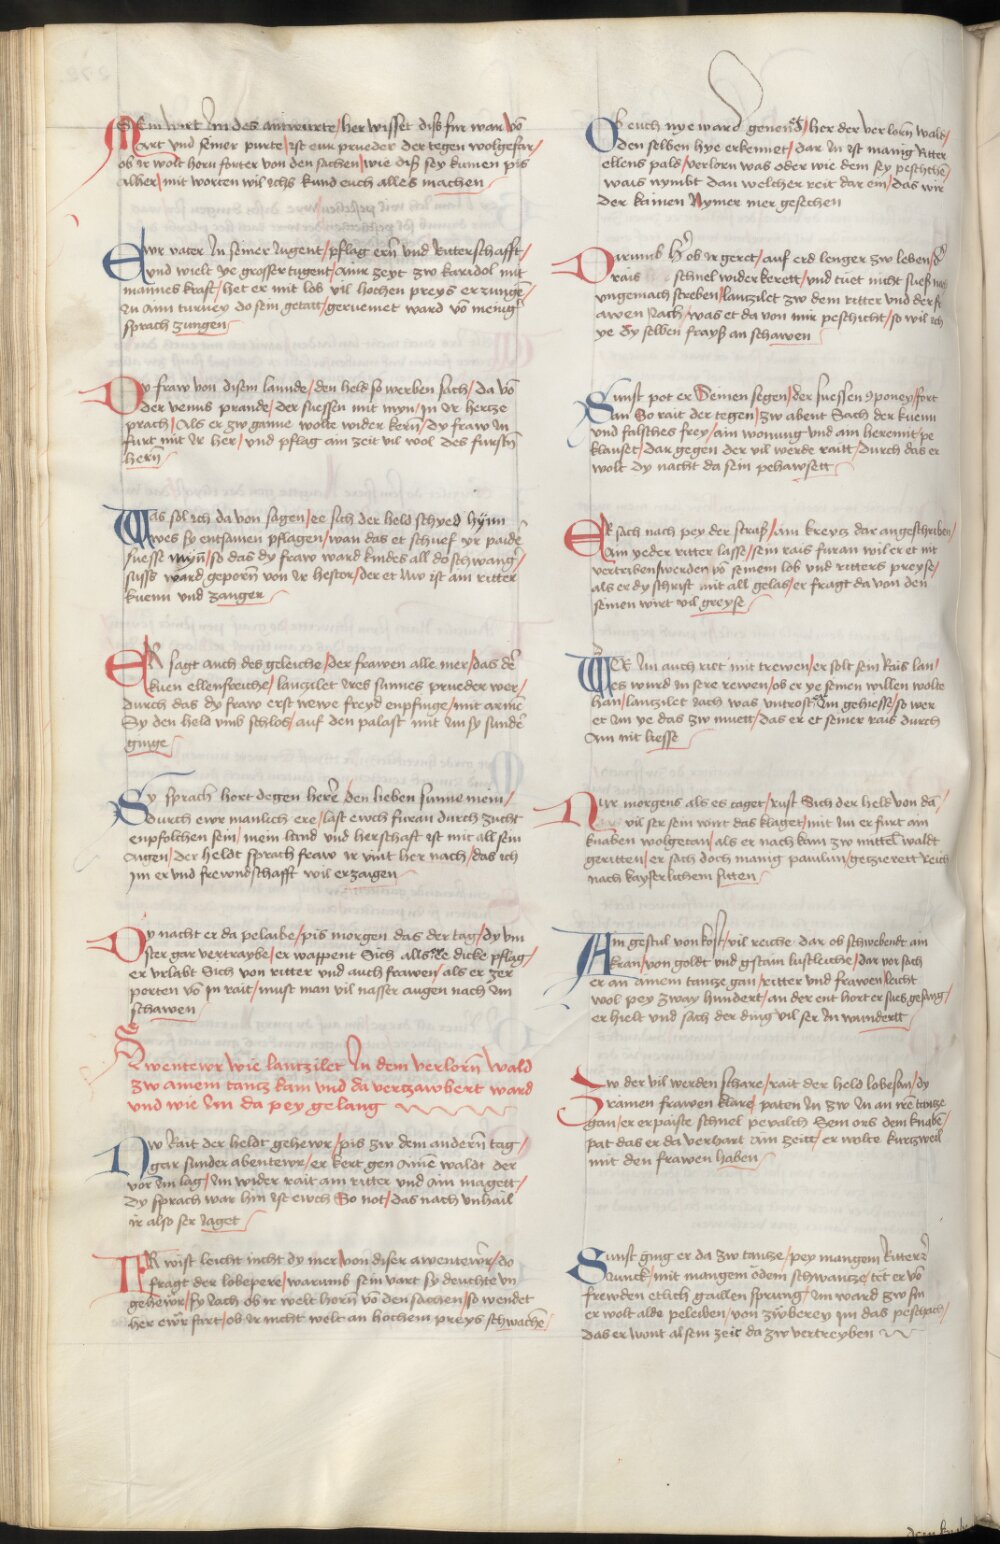 Sein wirt Im des antwurte / her wisset diß fur war vō
Art und seiner purte / ist eur prueder der tegen wolgefar /
ob ir wolt horn furter von den sachen / wie diß sey kumen pis
alher / mit worten wil ichß kund euch alles machen
Ewr vater In seiner Jugent / pflag ern̄ vnd Ritterschafft /
vnd wielt ye grosser tugent / ainr zeyt zw karidol mit
mannes kraft / het er mit lob vil hochen preys erzungē /
In aim turney do sein getatt / geruemet ward vō meniḡ
sprach zungen
Dy fraw von disem lannde / den held so werben sach / da vō
der venus prande / der suessen mit myn / in ir hertze
prach / Als er zw ganne wolte wider kern̄ / dy fraw in
furt mit ir her / vnd pflag ain zeit vil wol des furstn̄
hern̄
Was sol ich da von sagen / ee sich der held schyed hynn
wes sy entsamen pflagen / wan das et schuef yr paidē
suesse myn̄ / so das dy fraw ward kindes all do schwanḡ /
suss ward geporn̄ von ir hestor / der et Nw ist ain ritter
kuenn vnd zanger
ER sagt auch des geleiche / der frawen alle mer / das dē
kuen ellensreiche / lanzilet ires sunnes prueder wer /
durch das dy fraw erst wewe freyd enpfinge / mit armē
Sy den held vmb schlos / auf den palast mit im sy sundē
ginge
Sy sprach hort degen herē den lieben sunne mein /
durch ewr manlich ere / last ewch furan durch zucht
enpfolchen sein / mein land vnd herschaft ist mit all sein
aigen / der heldt sprach fraw ir vint her nach / das ich
im er vnd frewndschafft wil erzaigen
Dy nacht er da pelaibe / pis morgen das der tag / dy vin
ster gar vertraybe / er wappent Sich alls Ee dicke pflag /
er vrlabt Sich von ritter vnd auch frawen / als er zer
porten vō in rait / must man vil nasser augen nach im
schawen
Awentewr wie lantzilet In dem verlorn̄ wald
zw ainem tantz kam vnd da verzawbert ward
vnd wie im da pey gelang
Nw Rait der heldt gehewr / pis zw dem andern̄ tag /
gar sunder abentewr / er kert gen ainē waldt der
vor im lag / im wider rait ain ritter vnd ain magett /
dy sprach war hin ist ewch So not / das nach vnhail
ir also ser Jaget
IR wist leicht nicht dy mer / von diser awentewr̄ / do
fragt der lobepere / warumb sein vart sy deuchte vn
gehewr / sy Jach ob ir welt horn̄ vō den sachen / so wendet
her ewr fart / ob ir nicht welt an hochem preys schwachē
Ob euch nye ward genend̄ / her der verlorn̄ walt /
den selben hye erkennet / dar In ist manig Ritter
ellens pald / verlorn was oder wie dem sey peschehē /
wais nymbt dan welcher reit dar ein / das wir
der kainen Nymer mer gesechen
Darumb H̄ ob ir geret / auf erd lenger zw leben /
rais schnel widerkerett / vnd tuet nicht sueß
vngemach streben / lantzilet zw dem ritter vnd der fr
awen Jach / was et da von mir peschicht / so wil ich
ye dy selben frayß an schawen
Sunst pot er Seinen segen / der suessen Sponey / fort
an So rait der tegen / zw abent Sach der kuenn
vnd falsches frey / ain wonung vnd ain heremit / pe
klauset / dar gegen der vil werde raitt / durch das er
wolt dy nacht da sein pehawsett
ER sach nach pey der straß / ain kreytz dar angeschriben /
Ain yeder ritter lasse / sein rais furan wil er et nit
vertriben / werden vō seinem lob vnd ritters preyse /
als er dy schrift mit all gelas / er fragt da von den
seinen wirt vil greyse
WEr Im auch riet mit trewen / er solt sein Rais lan /
es wurd in sere rewen / ob er ye seinen willen wolte
han / lantzilet Jach was vntrost Im gehiesse / so wer
et im ye das zw muett / das er et seiner rais durch
Am nit liesse
Nur morgens als es taget / rust Sich der held von da /
vil ser sein wirt das klaget / mit im er furt ain
knaben wolgetan / als er nach kam zw mittel waldt
geritten / er sach doch manig paulun / getzierett Reich
nach kayserlichem sitten
Ain gestul von kost / vil reiche dar ob schwebendt ain
kran / von goldt vnd gstain lustleiche / dar vor sach
er an ainem tantze gan / ritter vnd frawen leicht
wol pey zway hundert / an der ent hort er sues gesang /
er hielt vnd sach der ding vil ser In wundertt
Zw der vil werden schare / rait der held lobesan / dy
rainen frawen klare / paten In zw In an irē tantze
gan / er erpaiste schnel pevalch Sein ors dem knabē /
pat das er da verhart ain zeitt / er wolte kurzweil
mit den frawen haben
Sunst ging er da zw tantze / pey mangem Ritter
Junck / mit mangem odem schwantze / tet er vō
frewden etlich gaillen sprung / im ward zw sin
er wolt alde peleiben / von zawberey im das peschach /
das er wont al sein zeit da zw vertreyben